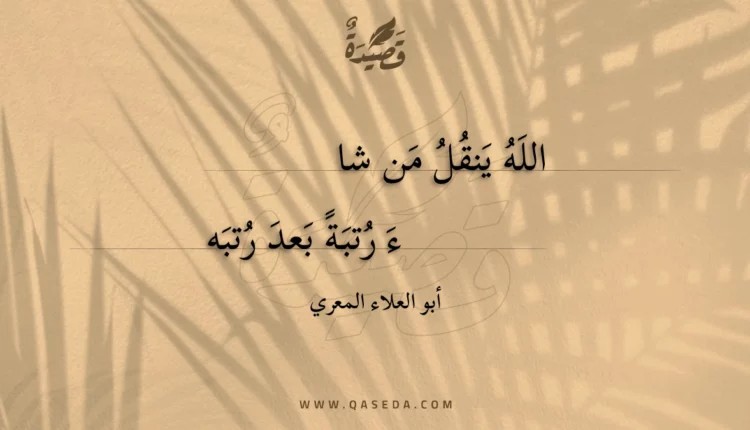 قَصِيْدَةٌ
اللَهُ يَنقُلُ مَن شا
ءَ رُتبَةً بَعدَ رُتبَه
أبو العلاء المعري
WWW.QASEDA.COM